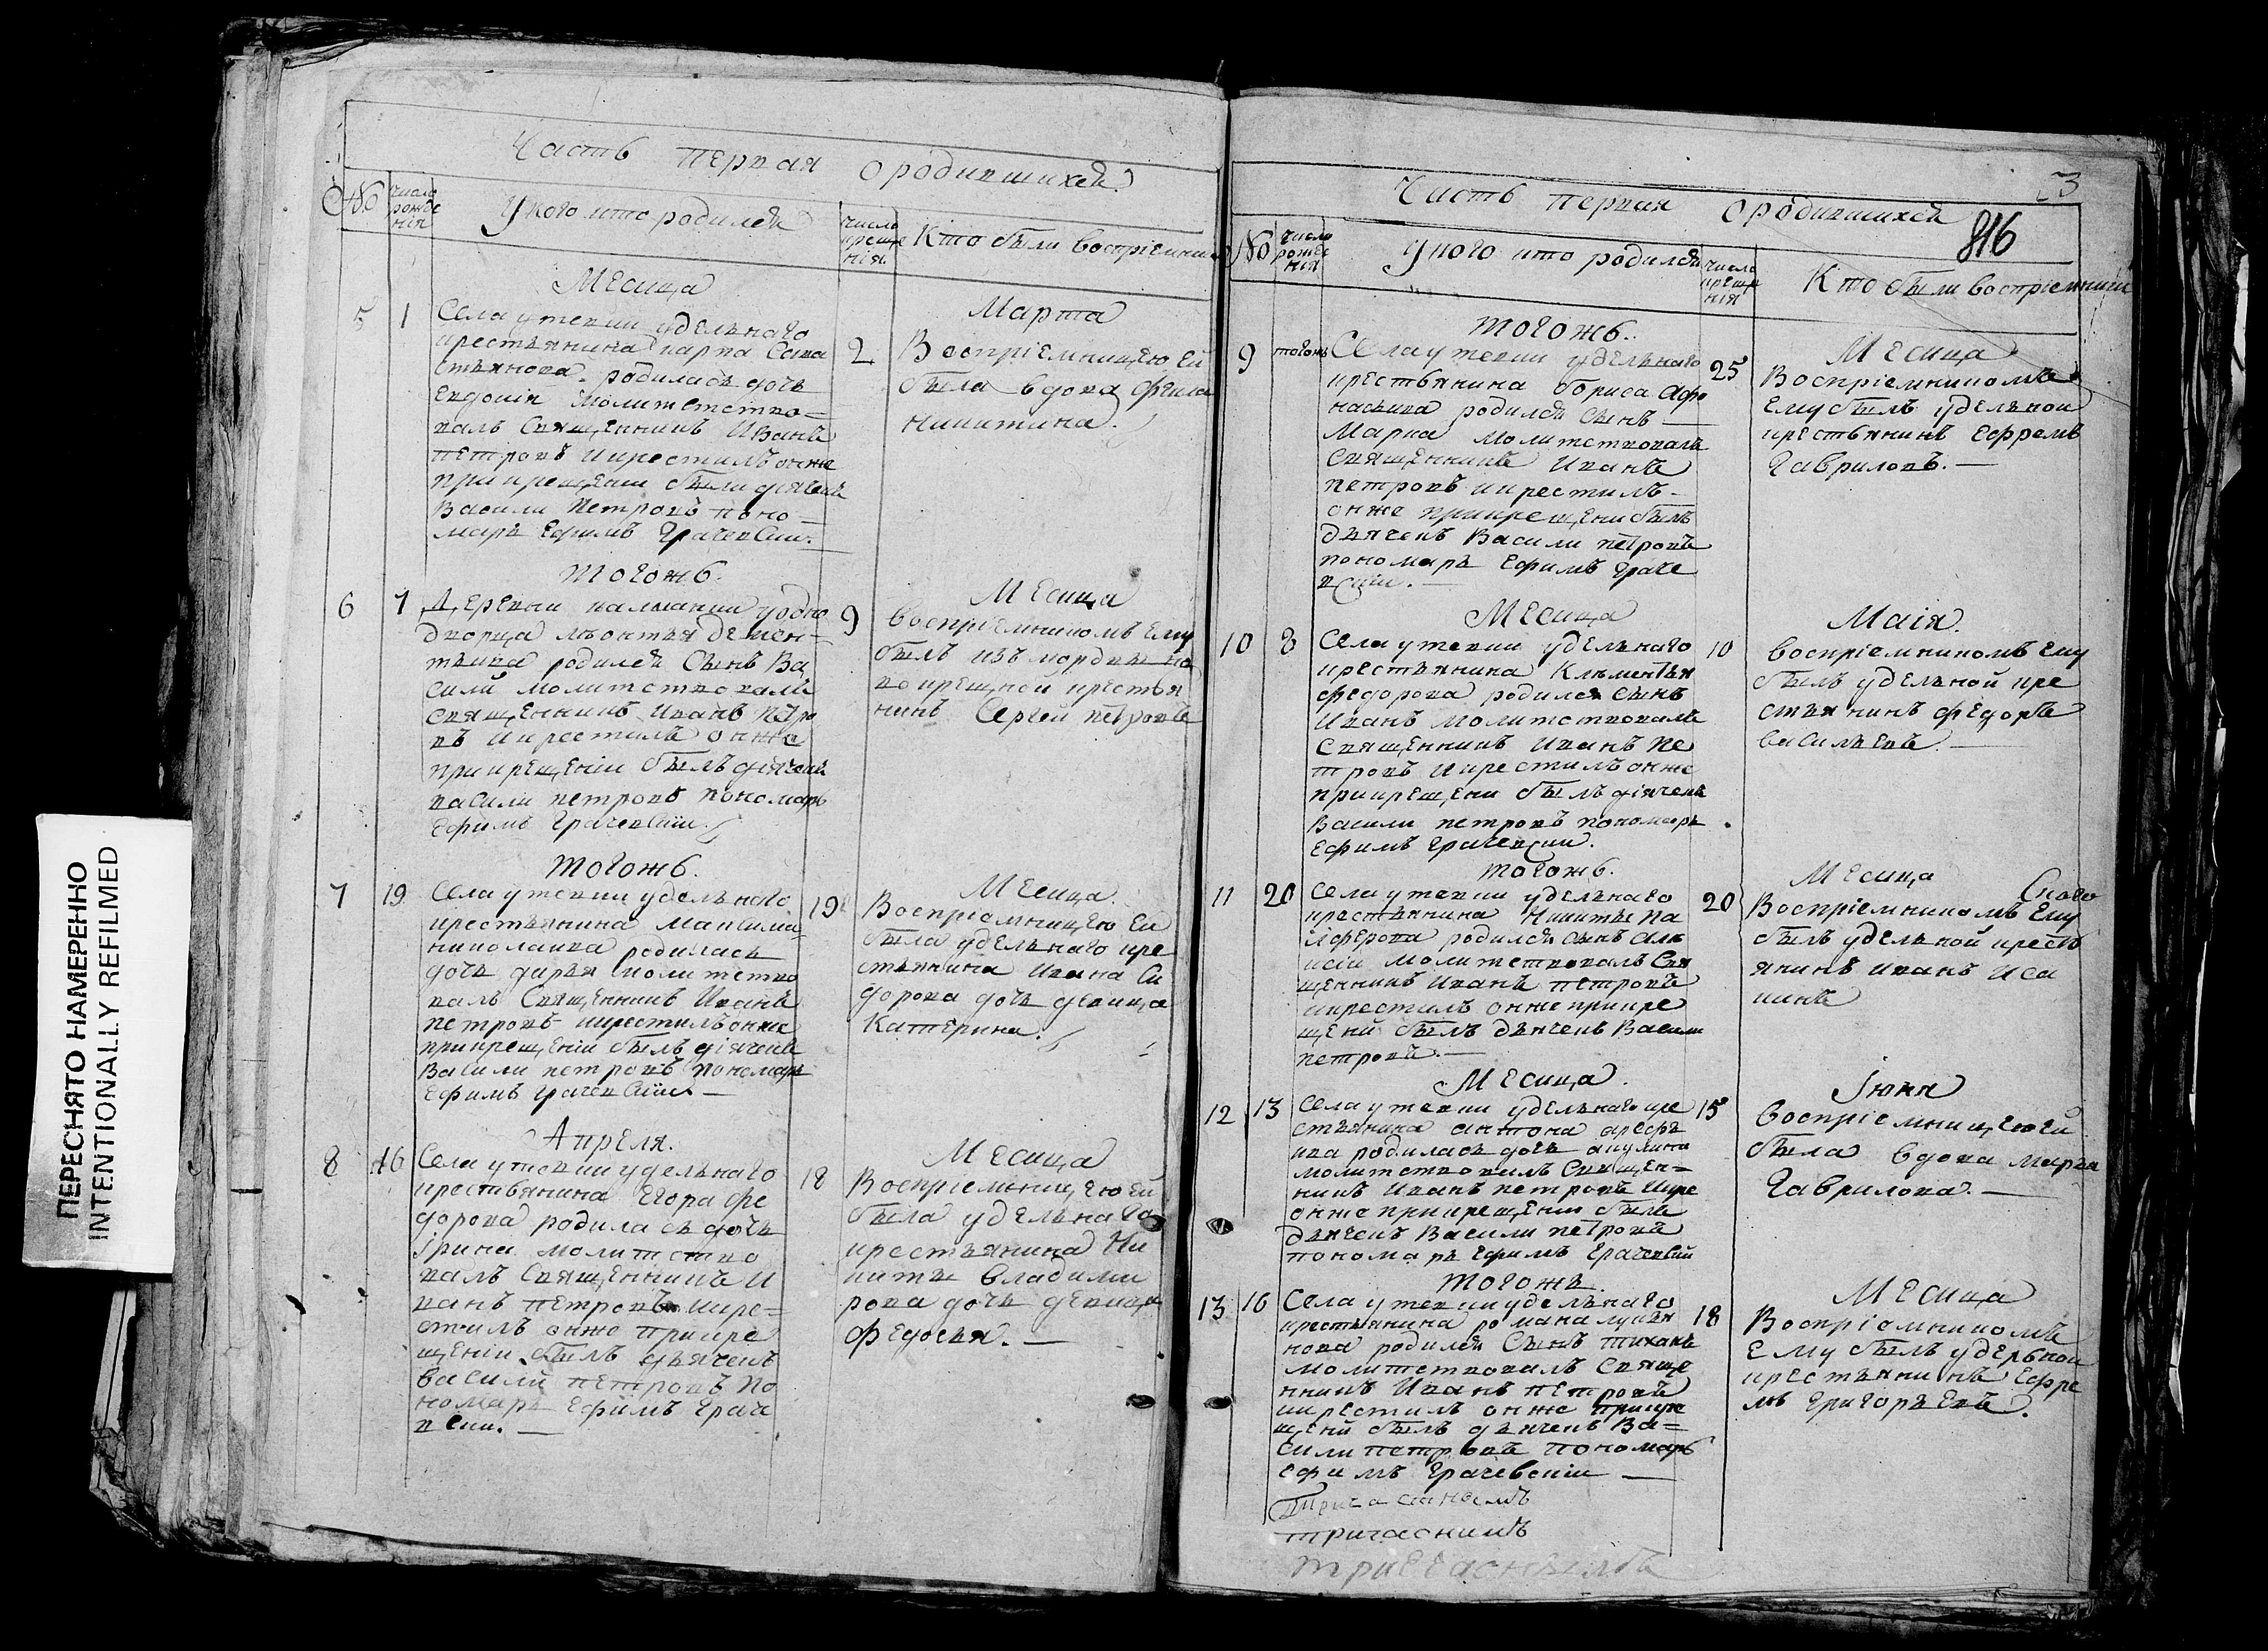 ПЕРЕСНЯТО НАМЕРЕННО
INTENTIONALLY REFILMED
Часть первая ородившихся
№
число рожде нія
Укого кто родился
число креще нія
Кто были воспріемники
Месица
Марта
5 1
Села утевки удельнаго
крестьянина карпа Сава
стьянова родилась дочь
Евдокія молитствo=
валъ Священникъ Иванъ
петровъ икрестилъ онже
при крещеніи были дьячекъ
Васили Петровъ поно=
марь Ефимъ Грачевски.
2
Воспріемницею Ей
была вдова
Никитина.
тогожъ.
Месица
6 7
Деревни
дворца
родился Сынъ Ва
силй молитствовалъ
священникъ Иванъ Петро
въ икрестилъ онже
прикрещеніи былъ дьячекъ
васили петровъ пономарь
Ефимъ Грачевски.
9
воспріемникомъ Ему
былъ изъ мордвы но
вокрещной крестья
нинъ Сергей петровъ
тогожъ.
Месица.
7 19
Села утевки удельнаго
крестьянина Максима
николаива родилась
дочь дарья молитство
валъ Священникъ Иванъ
петровъ икрестилъ онже
прикрещеніи былъ дьячекъ
Васили петровъ пономарь
Ефимъ Грачевски
19
Воспріемницею Ей
была удельнаго кре
стьянина Ивана Си
дорова дочь девица
Катерина.
Апреля.
Месица
8 16
Села утевки удельнаго
крестьянина Егора Фе
дорова родилась дочь
Ірина молитство
валъ Священникъ И
ванъ петровъ икре=
стилъ онже прикре
щеніи былъ дьячекъ
Васили петровъ по
номарь Ефимъ Граче
вски.
18
Воспріемницею Ей
была удельнаго
крестьянина Ни
киты Владими
рова дочь девица
Федосья.
3
816
Часть первая ородившихся
№
число рожде нія
Укого кто родился
число креще нія
Кто были воспріемники
тогожъ.
Месица
9 тогожъ
Села утевки удельнаго
крестьянина бориса Афо
насьива родился Сынъ
Марка молитствовалъ
Священникъ Иванъ
петровъ икрестилъ
онже прикрещени былъ
дьячекъ Васили петровъ
пономарь Ефимъ Граче
вски.
25
Воспріемникомъ
Ему былъ удельной
крестьянинъ Ефремъ
Гавриловъ.
Месица
Маія.
10 8
Села утевки удельнаго
крестьянина Клементья
федорова родился Сынъ
Иванъ молитствовалъ
Священникъ Иванъ Пе
тровъ икрестилъ онже
прикрещени былъ дьячекъ
Васили петровъ пономарь
Ефимъ Грачевски.
10
воспріемникомъ Ему
былъ удельной кре
стьянинъ федоръ
васильевъ.
тогожъ.
Месица
11 20
Села утевки удельнаго
крестьянина Никиты Па
родился Сынъ Але
ксіи молитствовалъ Свя
щенникъ Иванъ петровъ
икрестилъ онже прикре
щени былъ дьячекъ Васили
петровъ.
20
Воспріемникомъ Ему
былъ удельной кресть
янинъ Иванъ Иса
кинъ
Месица.
Іюня
12 13
Села утевки удельнаго кре
стьянина антона арефь
ива родилась дочь акулина
молитствовалъ Священ=
никъ Иванъ петровъ икре
онже прикрещени былъ
дьячекъ Васили петровъ
пономарь Ефимъ Грачевски
15
воспріемницею ей
была вдова марья
Гаврилова.
тогожъ.
Месица
13 16
Села утевки удельнаго
крестьянина романа лукья
нова родился Сынъ тиханъ
молитствовалъ Свяще
нникъ Иванъ петровъ
икрестилъ онже прикре
щени былъ дьячекъ Ва=
сили петровъ пономарь
Ефимъ Грачевскіи
18
Воспріемникомъ
Ему былъ удельной
крестьянинъ Ефре
мъ Григорьевъ.